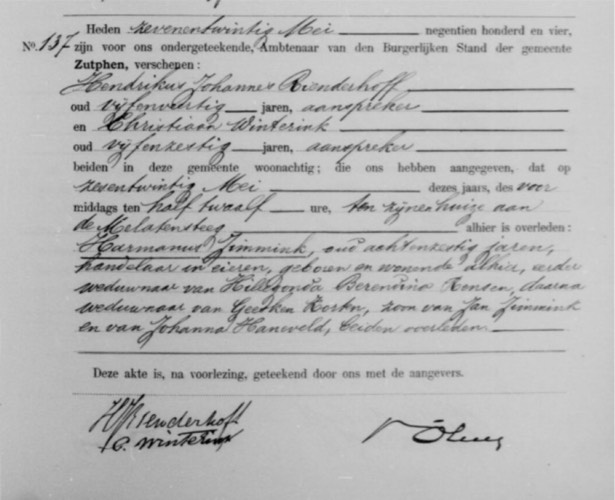 Heden zevenentwintig Mei negentien honderd en vier,
No. 137 zijn voor ons ondergeteekende, Ambtenaar van den Burgerlijken Stand der gemeente
Zutphen, verschenen:
Hendrikus Johannes Rienderhoff
oud vijfenveertig jaren, aanspreker
en Christiaan Winterink
oud vijfenzestig jaren, aanspreker
beiden in deze gemeente woonachtig; die ons hebben aangegeven, dat op
zesentwintig Mei dezes jaars, des voor
middags ten half twaalf ure, ten zijnen huize aan
de Melatensteeg alhier is overleden:
Harmanus Jimmink, oud achtenzestig jaren,
handelaar in eieren, geboren en wonende alhier, eerder
weduwnaar van Hillegonda Berendina Rensen, daarna
weduwnaar van Geesken, zoon van Jan Jimmink
en van Johanna Haneveld, beiden overleden
Deze akte is, na voorlezing, geteekend door ons met de aangevers.
HJRienderhoff
C. Winterink